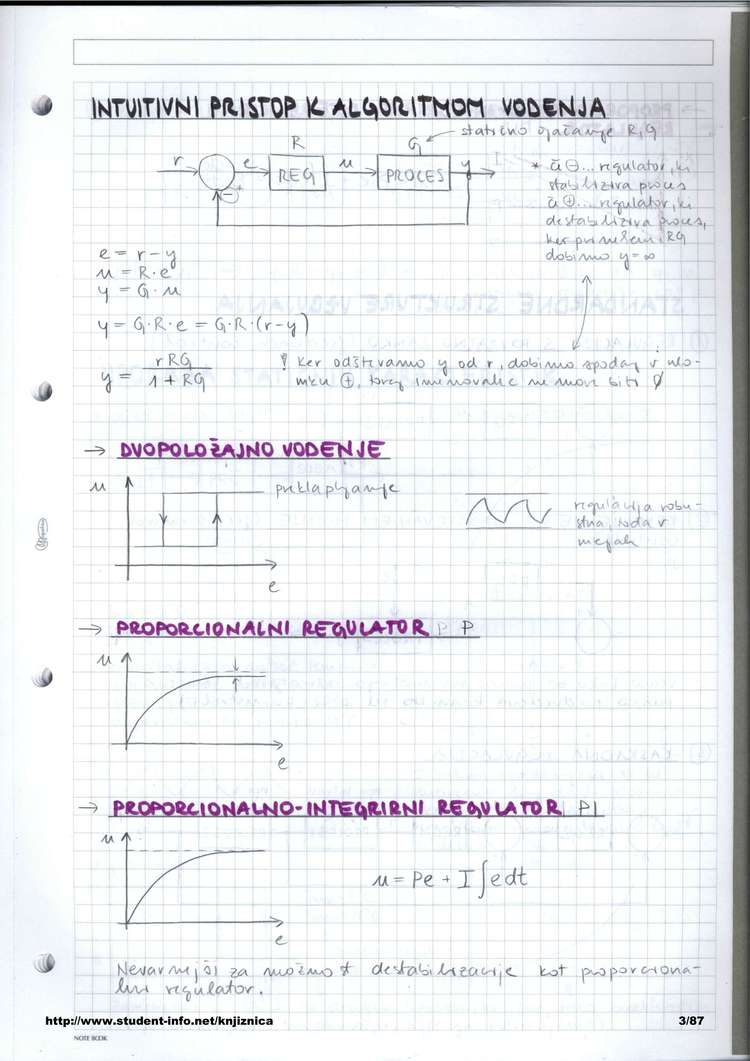 INTUITIVNI PRISTOP K ALGORITMOM VODENJA
statično ojačanje R, G
R
G
r
e
REG
u
PROCES
y
+
−
* če ⊖... regulator, ki
stabilizira proces
če ⊕... regulator, ki
destabilizira proces,
ker pri RG
dobimo y=∞
e = r-y
u = R·e
y = G·u
y = G·R·e = G·R·(r-y)
y = rRG / 1+RG
! Ker odštevamo y od r, dobimo spodaj v ulo-
mku ⊕, torej imenovalec ne more biti 0
→ DVOPOLOŽAJNO VODENJE
u
preklapljanje
e
regulacija robu-
stna, toda v
mejah
→ PROPORCIONALNI REGULATOR P P
u
e
→ PROPORCIONALNO-INTEGRIRNI REGULATOR PI
u
e
u = Pe + I∫edt
Nevarnejši za možnost destabilizacije kot proporciona-
lni regulator.
http://www.student-info.net/knjiznica
3/87
NOTE BOOK